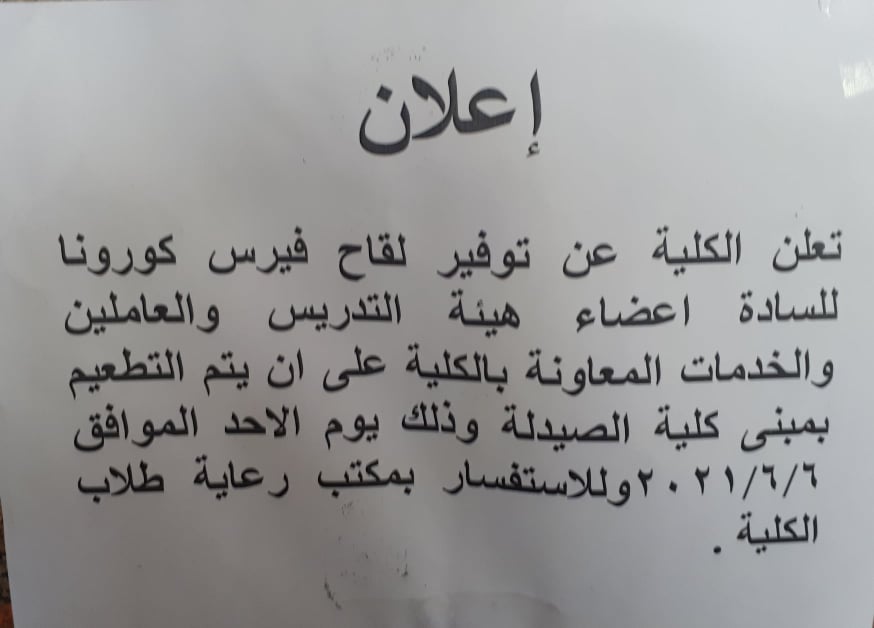 إعلان
تعلن الكلية عن توفير لقاح فيرس كورونا
للسادة اعضاء هيئة التدريس والعاملين
والخدمات المعاونة بالكلية على ان يتم التطعيم
بمبنى كلية الصيدلة وذلك يوم الاحد الموافق
٢٠٢١/٦/٦ وللاستفسار بمكتب رعاية طلاب
الكلية .